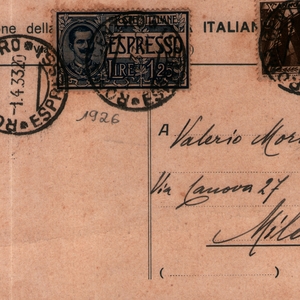 one della ITALIAN
POSTE ITALIANE
ESPRESSO
LIRE 1,25
-1.4.33.20
ESPR
1926
A Valerio Mor
Via Canova 27
Mila
( )